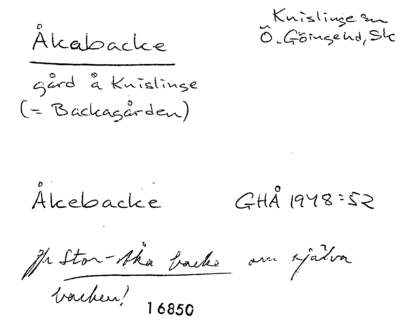 Knislinge sn
Ö. Göingehd, Sk
Åkabacke
gård å Knislinge
(= Backagården)
Åkebacke GHÅ 1948:52
jfr Stor-Åka backe om själva
backen!
16850